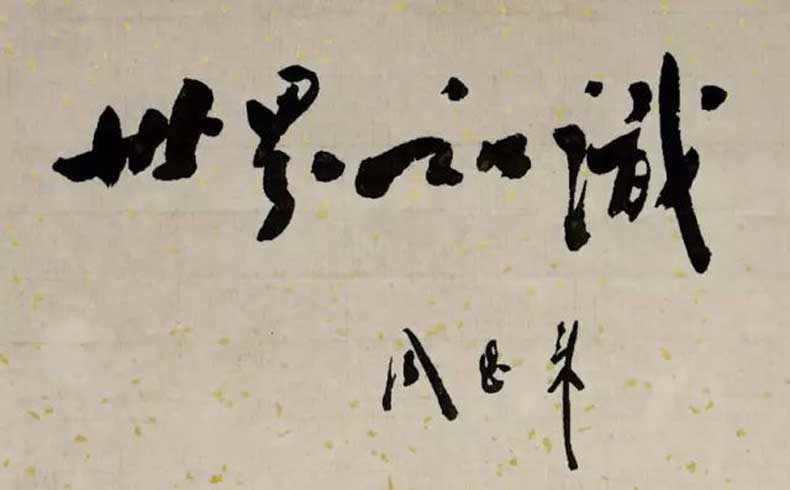 世界知識
周恩来